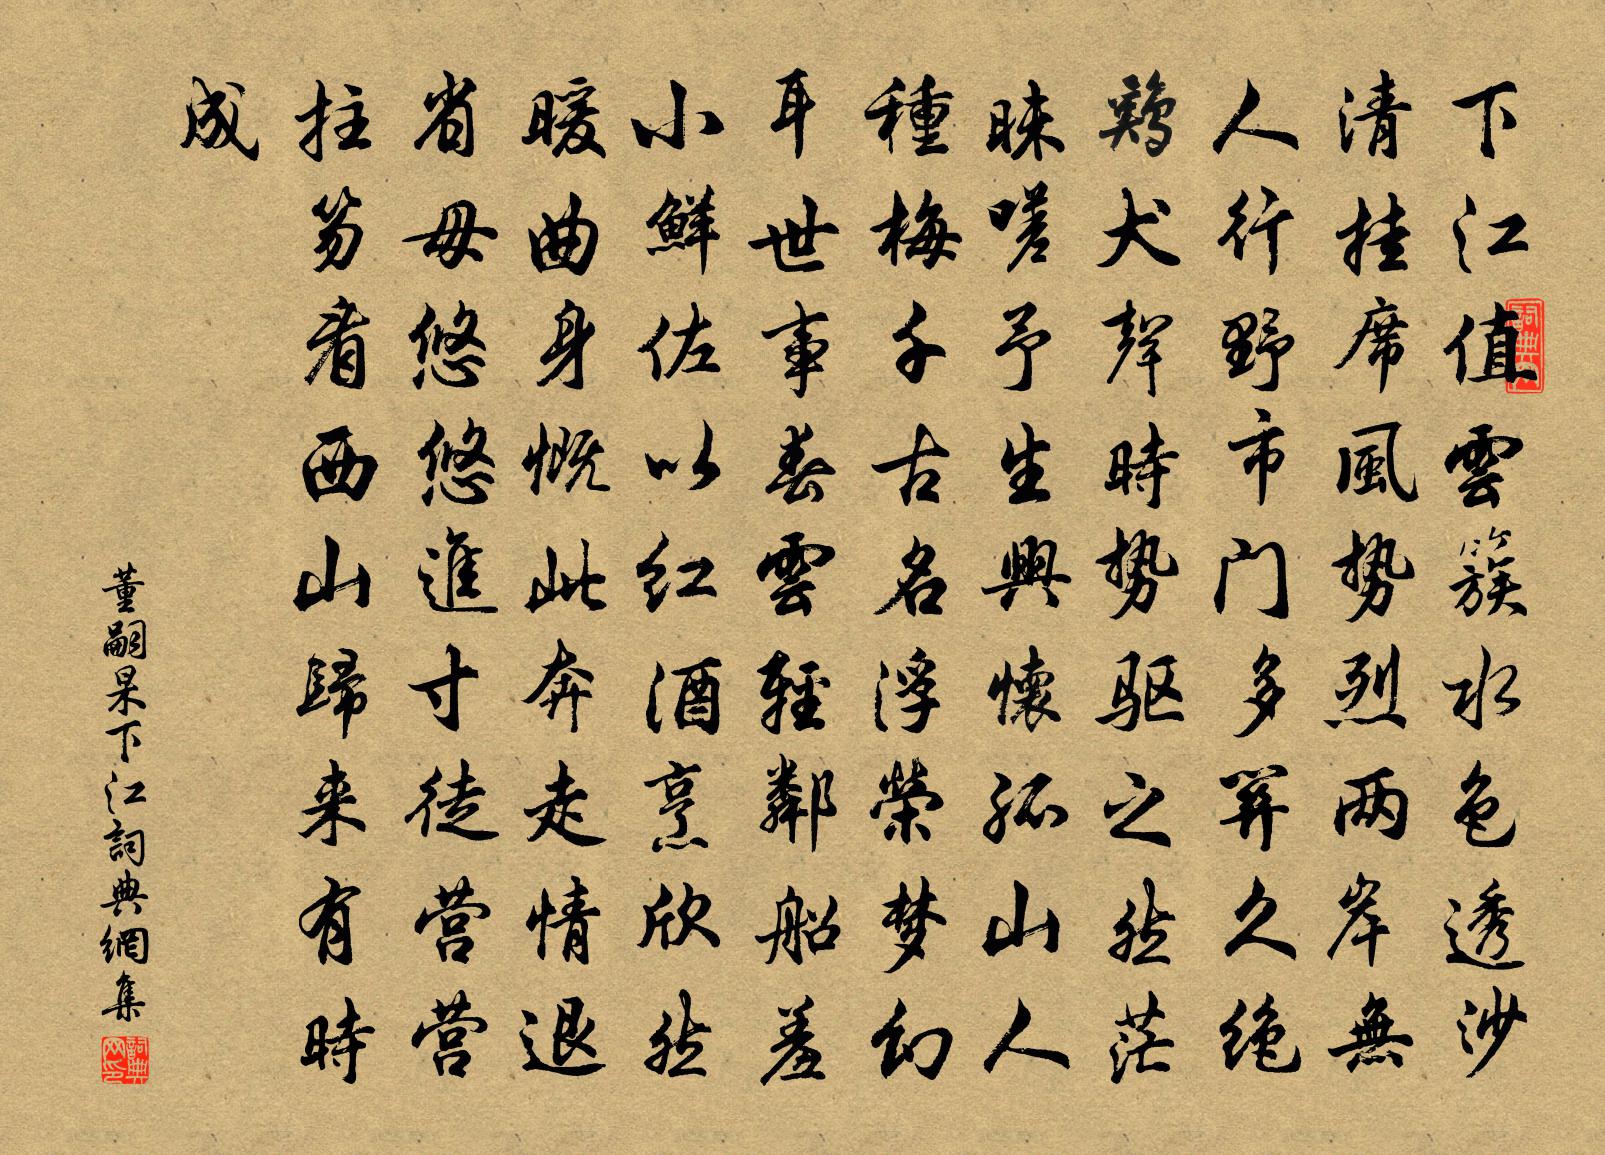 下江值雲簇水色透沙
清挂席風勢烈兩岸無
人行野市门多閉久絶
鷄犬聲時勢驱之然茫
昧嗟予生興懷孤山人
種梅千古名浮榮梦幻
耳世事春雲輕鄰船羞
小鮮佐以红酒烹欣然
暖曲身慨此奔走情退
省毋悠悠進寸徒营营
拄笏看西山歸来有時
成
董嗣杲下江詞典網集
詞典
詞典网印